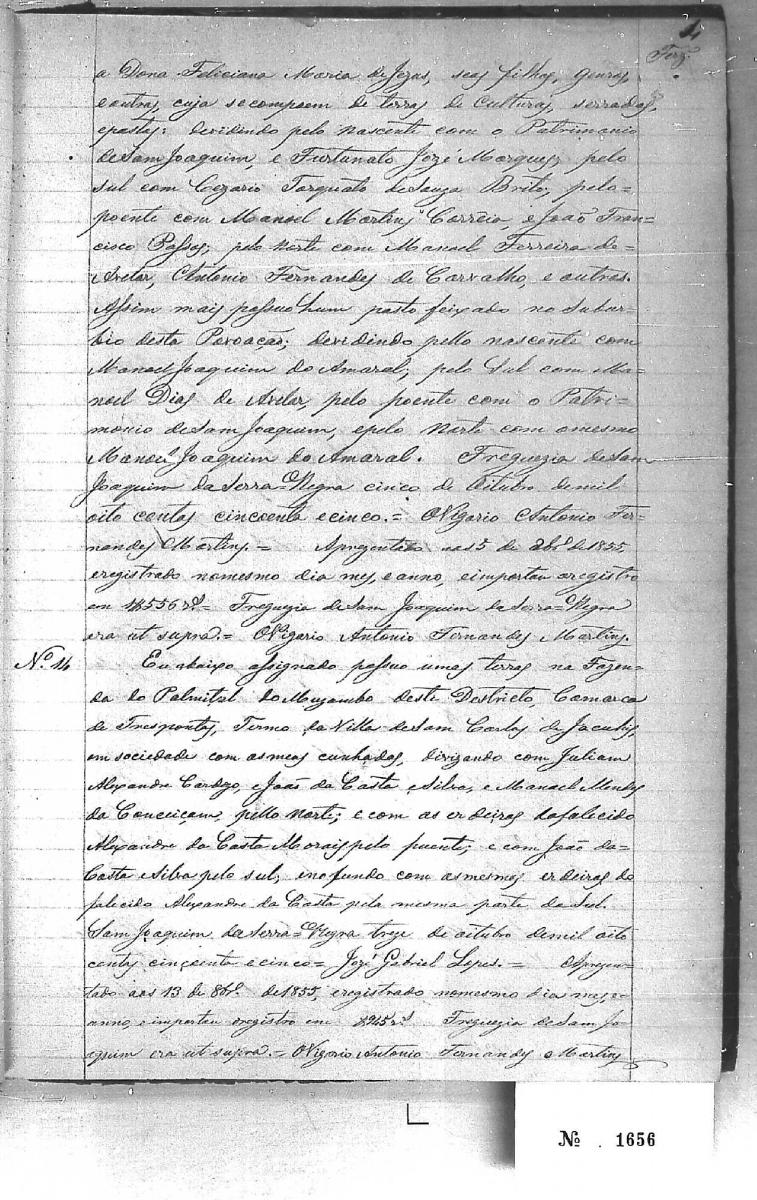 4
Ferz.
a Dona Feliciana Maria de Jezus, seos filhos, genros,
e outros, cuja se compoem de terras de Culturas, serrados,
e pastos: devidindo pelo nascente com o Patrimonio
de Sam Joaquim, e Furtunato Jozé Marques, pelo
sul com Cezario Torquato de Souza Brito, pelo=
poente com Manoel Martins Corrêia, e João Fran-
cisco Passos; pelo Norte com Manoel Ferreira de=
Avelar, Antonio Fernandes de Carvalho, e outros.
Assim mais possuo hum pasto feixado no Subur-
bio desta Povoação; devidindo pello nascente com
Manoel Joaquim do Amaral; pelo Sul com Ma-
noel Dias de Avelar, pelo poente com o Patri=
monio de Sam Joaquim, e pelo Norte com o mesmo
Manoel Joaquim do Amaral. Freguezia de Sam
Joaquim da Serra=Negra cinco de Oitubro de mil
oito centos cincoenta e cinco.= O Vigario Antonio Fer-
nandes Martins.= Aprezentado aos 5 de 8brº de 1855,
e registrado no mesmo dia mes, e anno, e importou o registro
em 1$556 rs= Freguezia de Sam Joaquim da Serra=Negra
era ut supra.= O Vigario Antonio Fernandes Martins.
Nº 14 Eu abaixo assignado possuo umas terras na Fazen-
da do Palmital do Muzambo deste Destricto, Comarca
de Trespontas, Termo da Villa de Sam Carlos de Jacuhis,
em sociedade com os meos cunhados, divizando com Juliam
Alexandre Cardozo, e João da Costa e Silva, e Manoel Mendes
da Conceiçam, pello Norte; e com os erdeiros do falecido
Alexandre da Costa Morais pelo puente; e com João da=
Costa e Silva pelo sul, e no fundo com os mesmos erdeiros do
falecido Alexandre da Costa pela mesma parte do Sul.
Sam Joaquim da Serra=Negra treze de oitubro de mil oito
centos cincoenta e cinco= Jozé Gabriel Lopes.= Aprezen-
tado aos 13 de 8brº de 1855, e registrado no mesmo dia mes, e=
anno, e importou o registro em $945 rs Freguezia de Sam Jo-
aquim era ut supra.= O Vigario Antonio Fernandes Martins
Nº . 1656